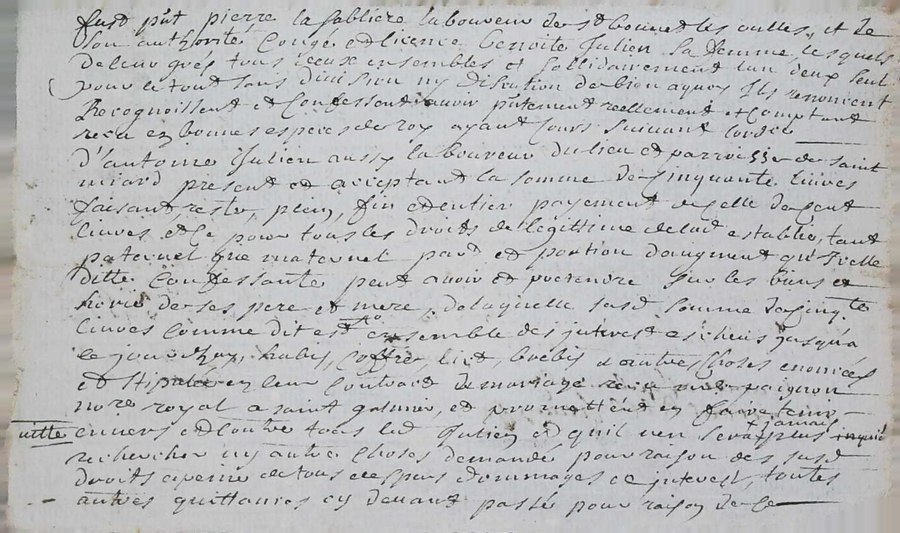 fust pñt pierre la sabliere laboureur de st bonnet les oulles, et de
son authorité congé et licence benoite Julien sa femme, lesquels
de leur grés tous deux ensembles et sollidairement lun deux seul
pour le tout sans division ny discution de bien aquoy Ils renoncent
Recognoissent et Confessent avoir pñtement reellement et Comptant
receu en bonnes especes de roy ayant cours suivant lordce
d'antoine Julien aussy laboureur du lieu et parroisse de saint
miard present et acceptant la somme de Cinquante livres
faisant, reste, plein, fin et entier payement de Celle de Cent
livres et Ce pour tous les droits de legittime de lad establie, tant
paternel que maternel part et portion daugment qu'Icelle
ditte Confessante peut avoir et pretendre sur les biens et
hoirie de ses pere et mere, de laquelle susd somme de Cinq.te
livres comme dit est ensemble des interest escheus jusqua
ce jourdhuy, habis, Coffre, lict, brebis et autre Choses enoncées
et stipulé en leur Contract de mariage receu me paignon
no.re royal a saint galmier, et promettent en faire tenir
quitte envers et Contre tous led Julien et quil n'en sera jamais plus
rechercher ny autre Choses demandé pour raison des susd
droits a peine de tous despens dommages et interest, toutes
autres quittances cy devant passée pour raison de Ce